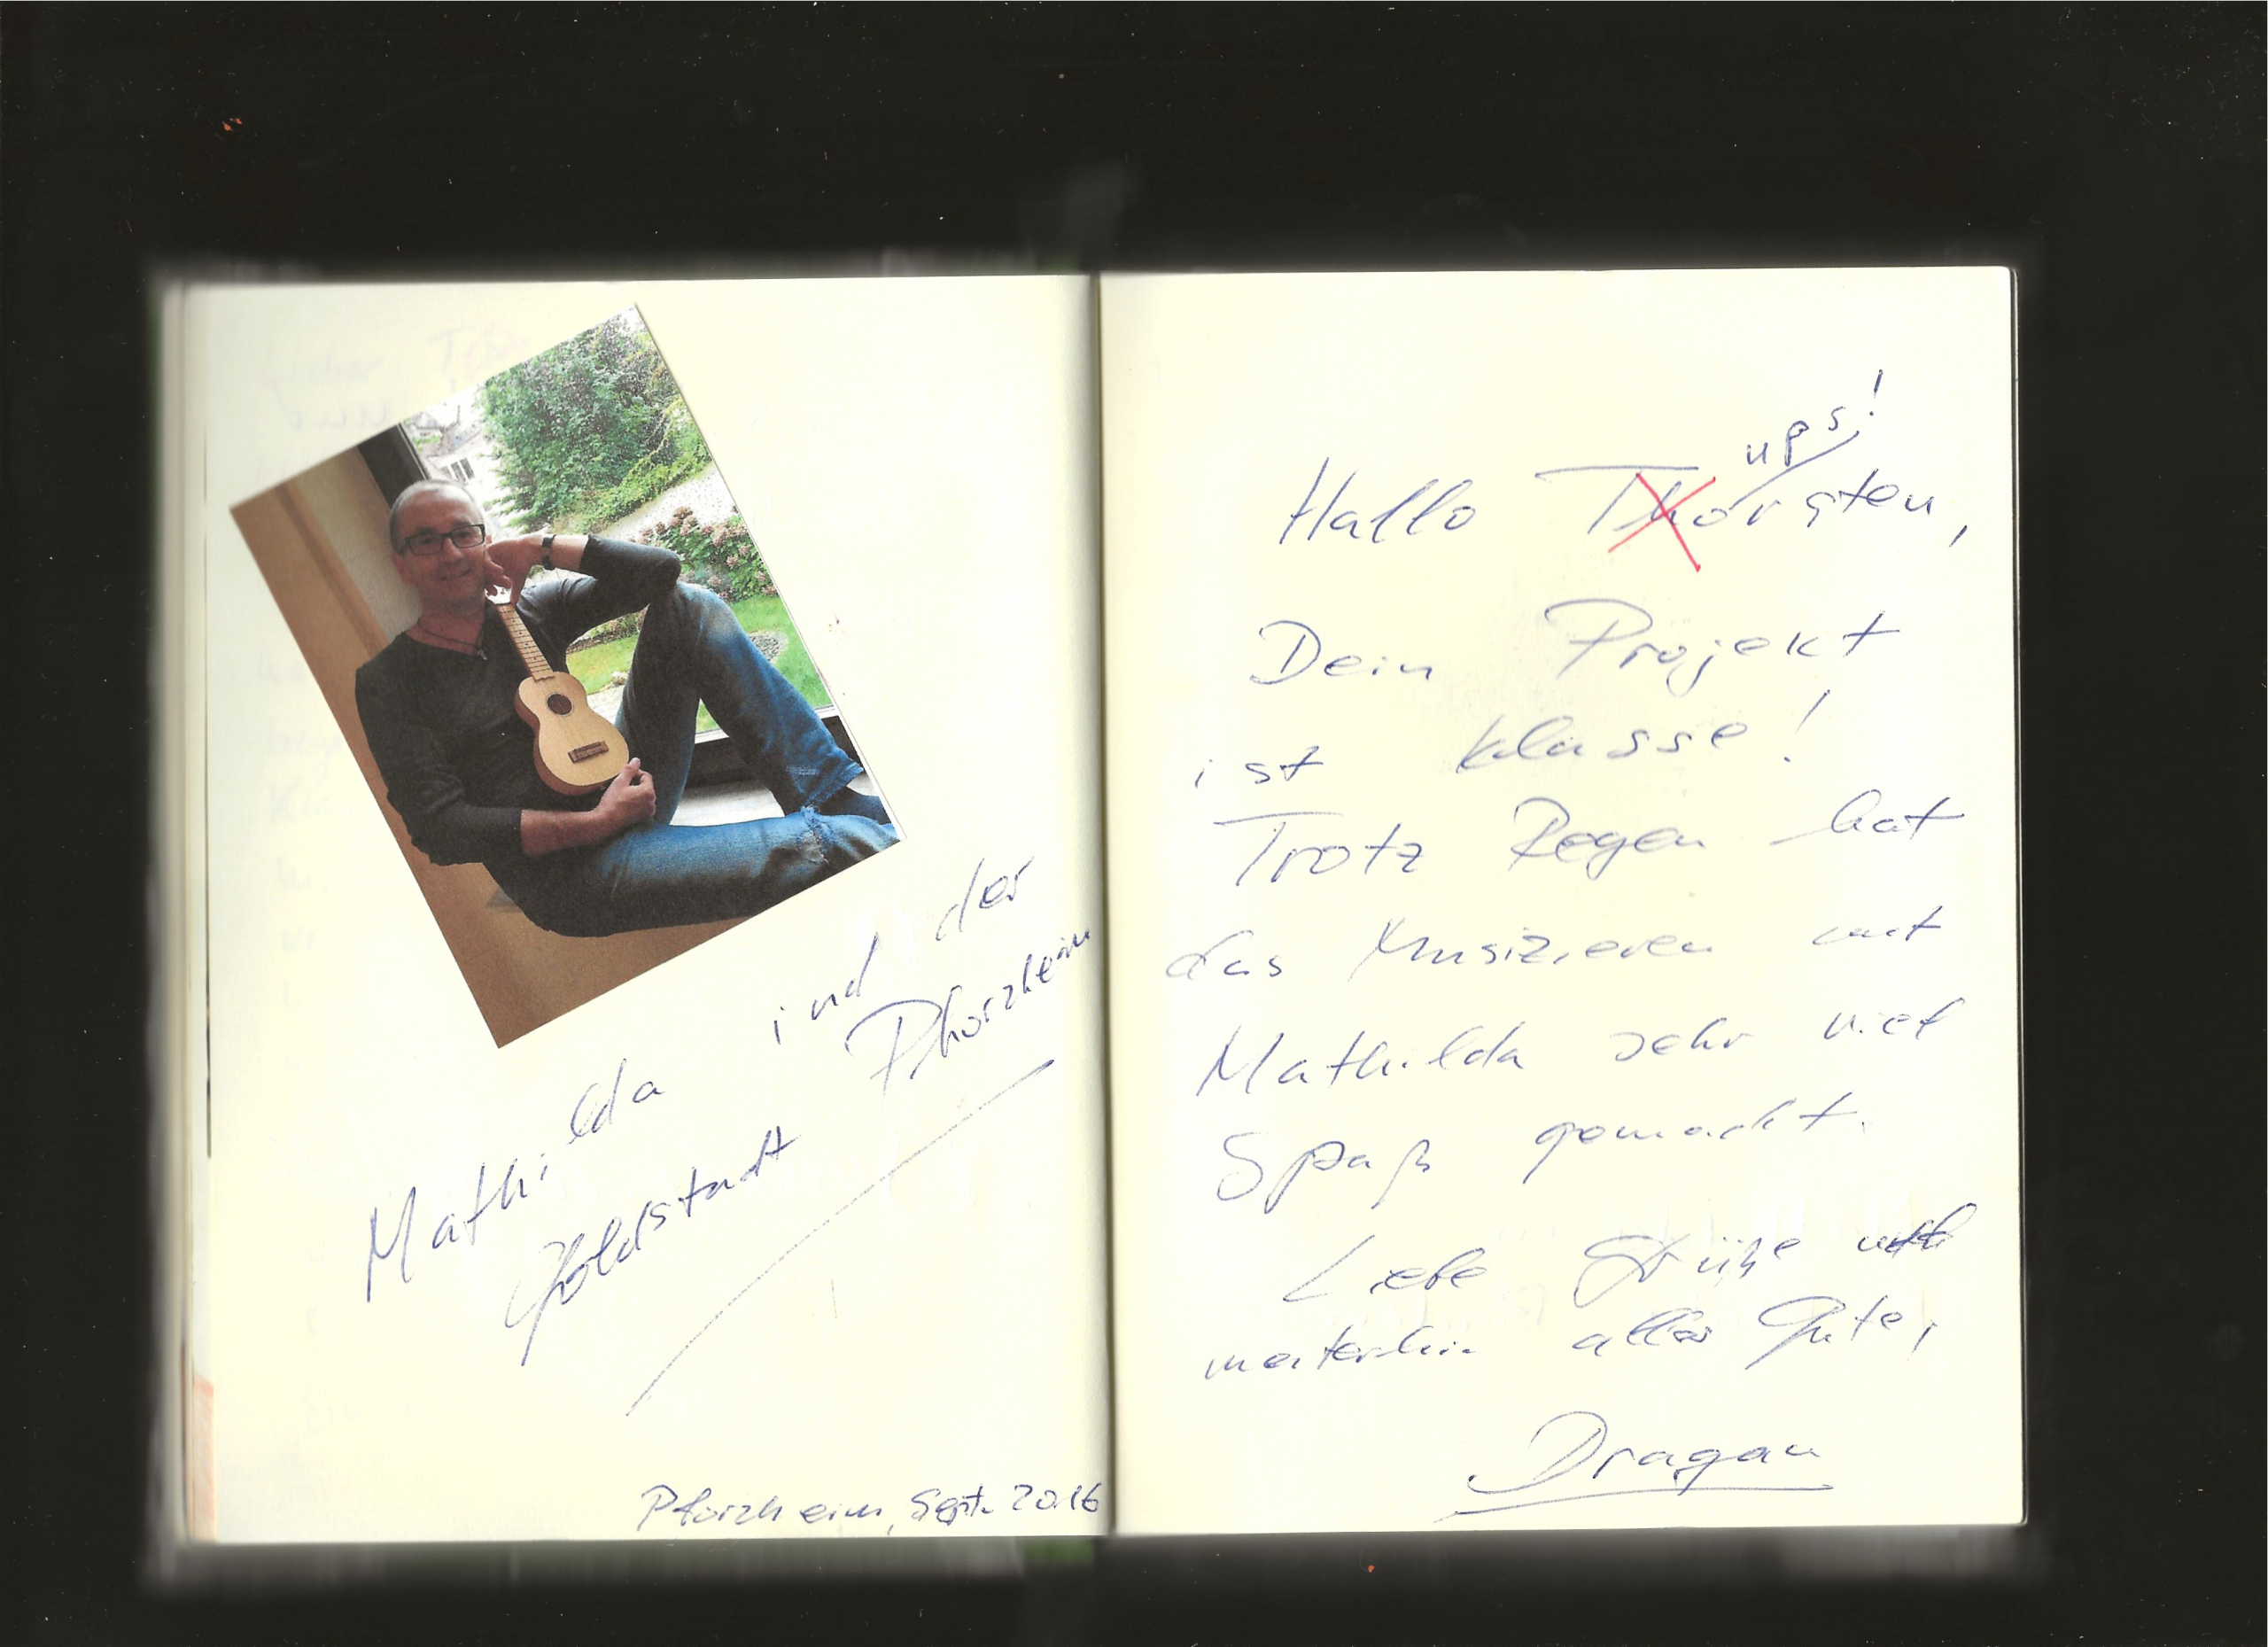 Mathilda ind der
Goldstadt Phorzheim
Pforzheim, Sept. 2016
ups!
Hallo Thorsten,
Dein Projekt
ist klasse!
Trotz Regen hat
das Musizieren mit
Mathilda sehr viel
Spaß gemacht.
Liebe Grüße und
weiterhin alles Gute,
Dragan